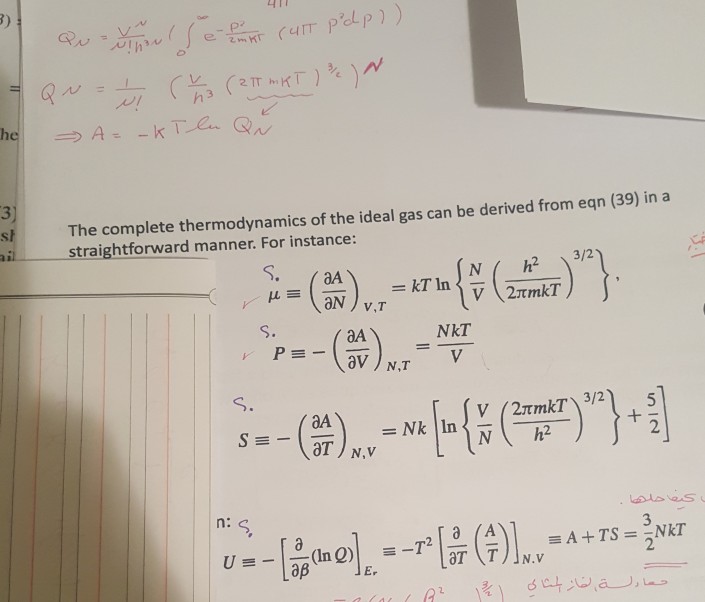 Q_N = V^N / N! h^{3N} ( ∫_0^∞ e^{-p²/2mKT} (4π p² dp) )
= Q_N = 1/N! ( V/h³ (2π mKT)^{3/2} )^N
he ⟹ A = -kT ln Q_N
3)
The complete thermodynamics of the ideal gas can be derived from eqn (39) in a
straightforward manner. For instance:
S.
μ ≡ (∂A/∂N)_{V,T} = kT ln { N/V ( h²/2πmkT )^{3/2} },
S.
P ≡ −(∂A/∂V)_{N,T} = NkT/V
S.
S ≡ −(∂A/∂T)_{N,V} = Nk [ ln { V/N ( 2πmkT/h² )^{3/2} } + 5/2 ]
كيف حلها
n: S.
U ≡ −[ ∂/∂β (ln Q) ]_{E_r} ≡ −T² [ ∂/∂T (A/T) ]_{N.V} ≡ A + TS = 3/2 NkT
معادلة الغاز المثالي